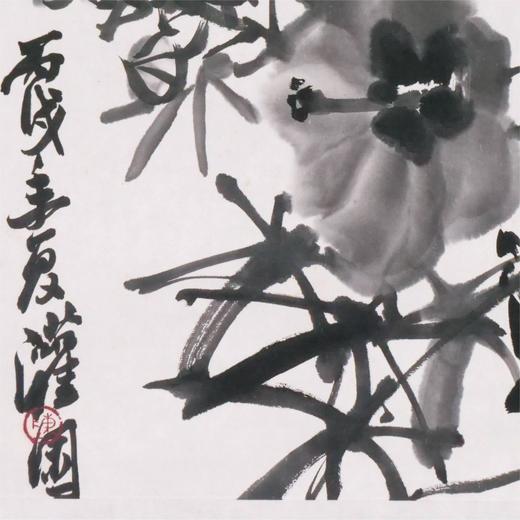 丙戌年夏灌園